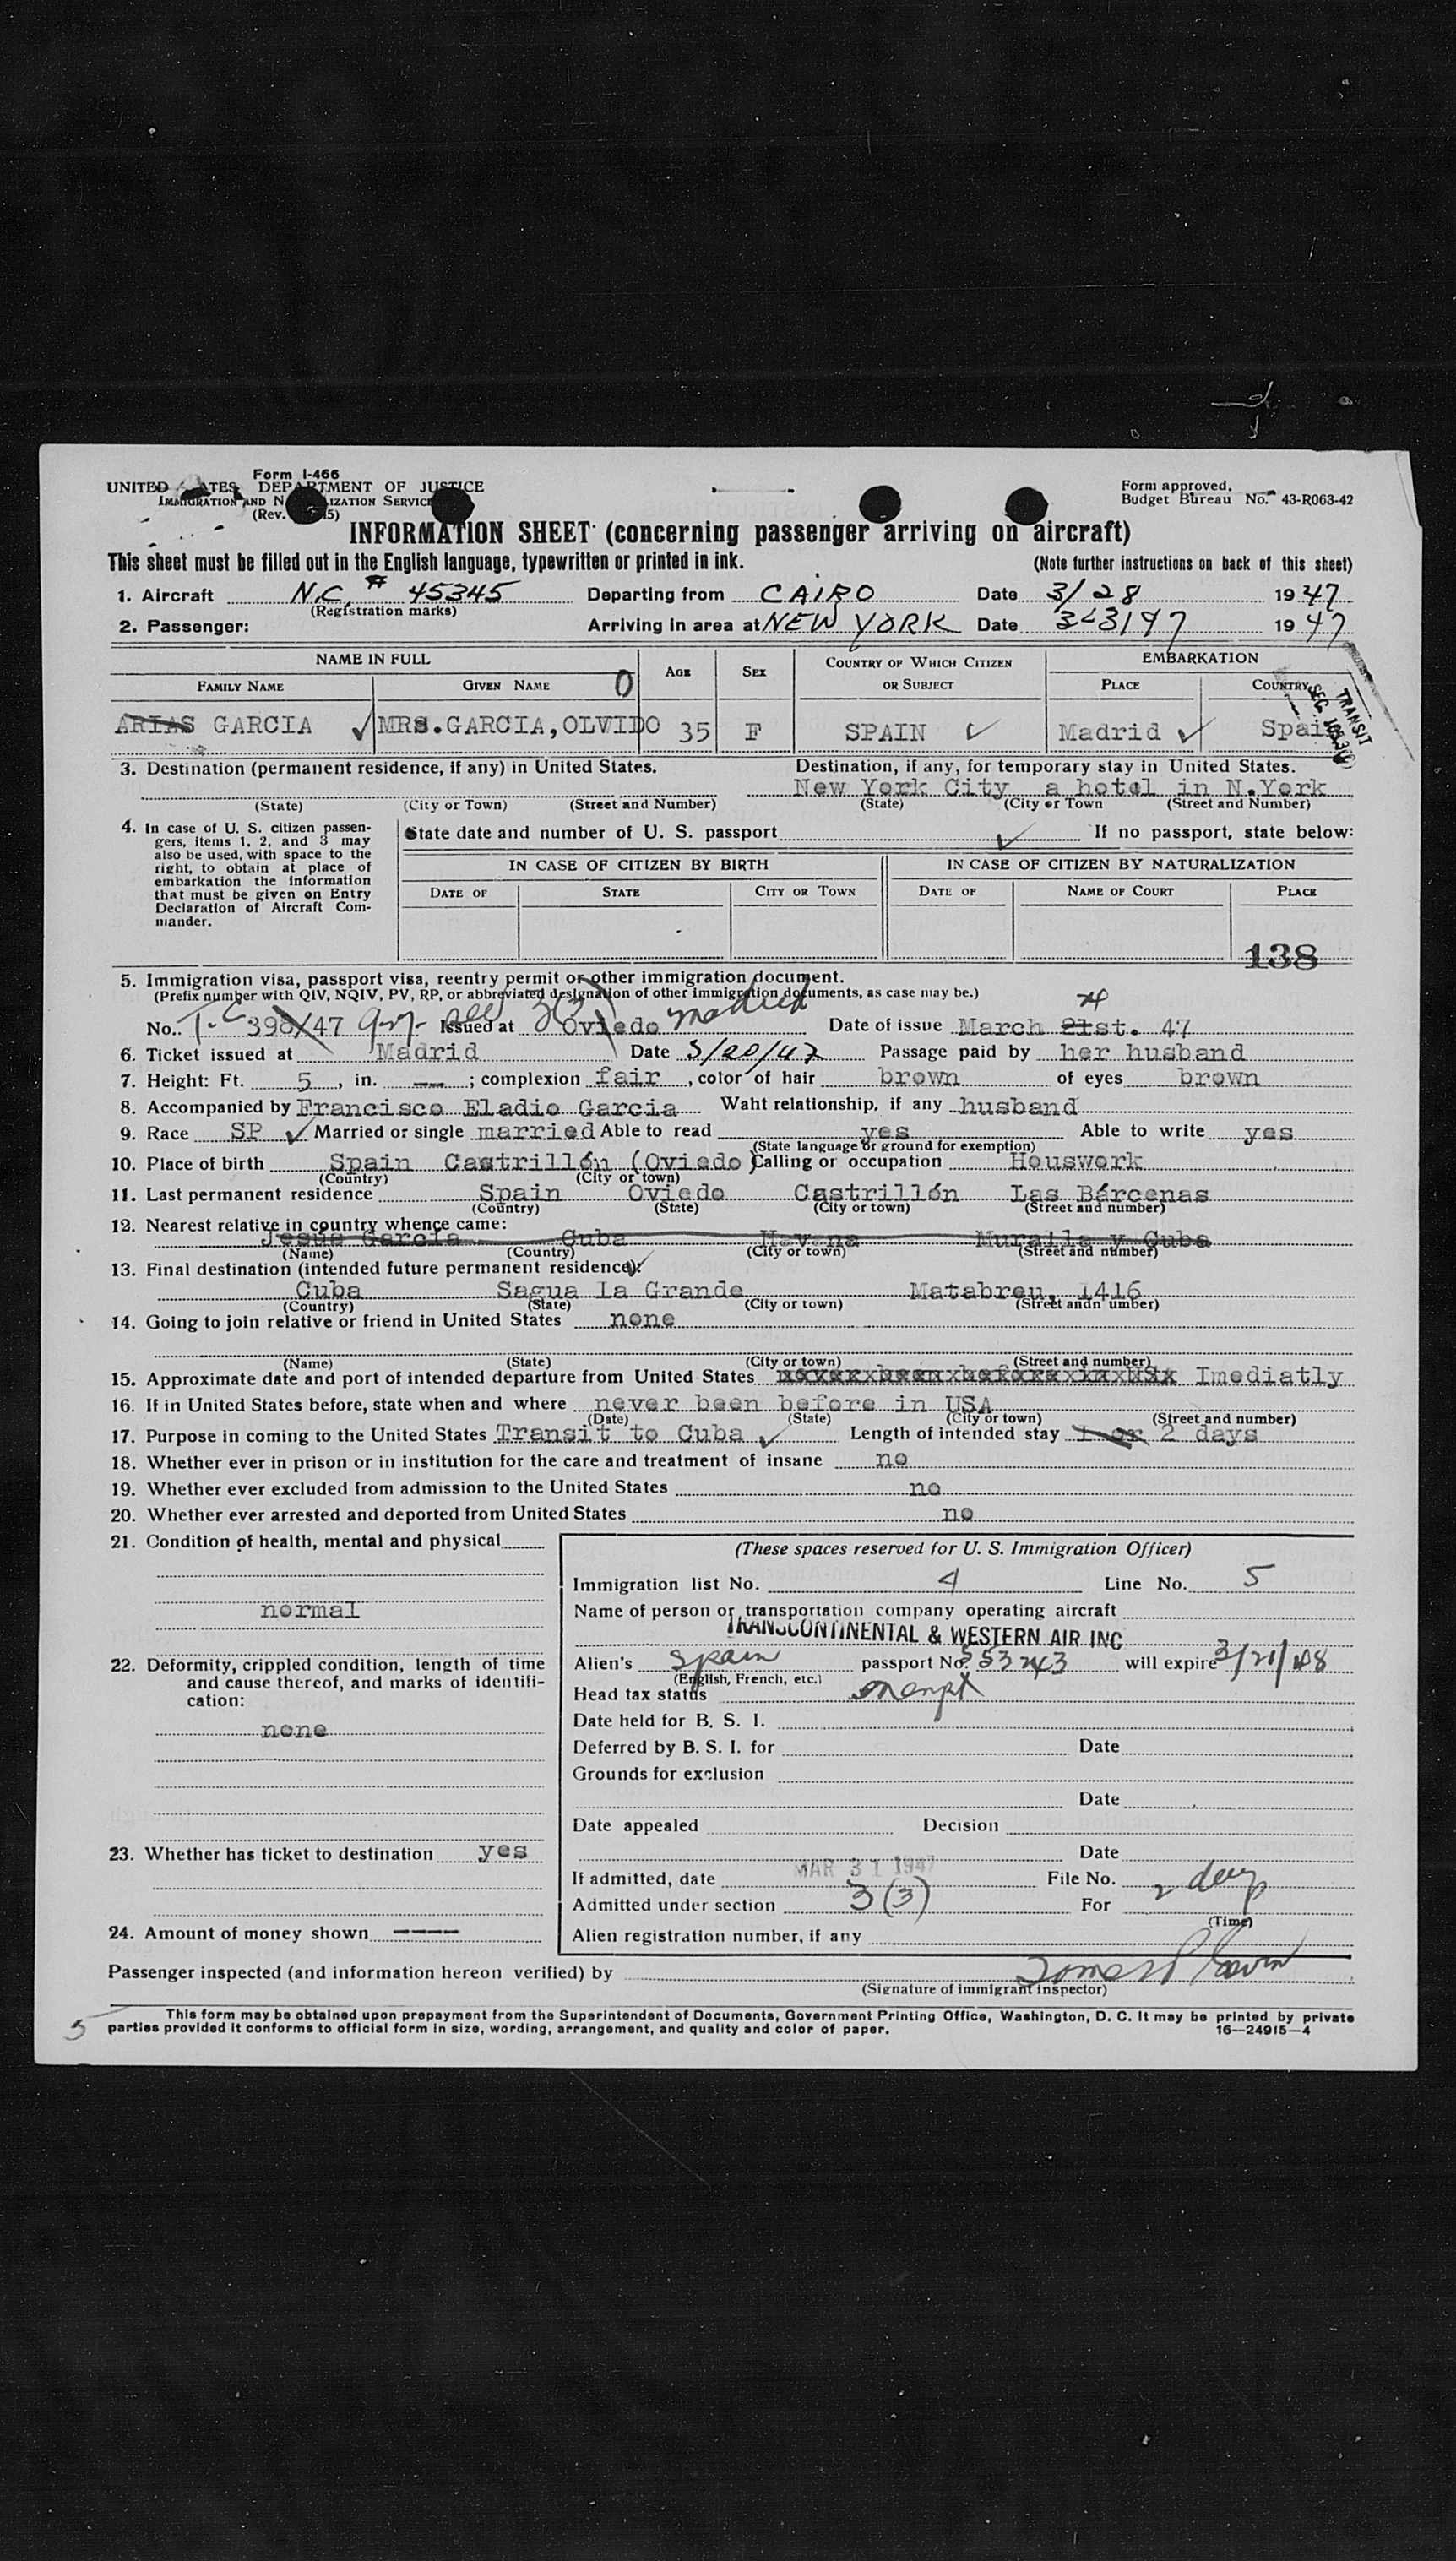 Form I-466
UNITED STATES DEPARTMENT OF JUSTICE
IMMIGRATION AND NATURALIZATION SERVICE
(Rev. 5)
Form approved.
Budget Bureau No. 43-R063-42
INFORMATION SHEET (concerning passenger arriving on aircraft)
This sheet must be filled out in the English language, typewritten or printed in ink. (Note further instructions on back of this sheet)
1. Aircraft N.C. # 45345 Departing from CAIRO Date 3/28 1947
(Registration marks)
2. Passenger: Arriving in area at NEW YORK Date 1947
NAME IN FULL AGE SEX COUNTRY OF WHICH CITIZEN OR SUBJECT EMBARKATION
FAMILY NAME GIVEN NAME PLACE COUNTRY
O
ARIAS GARCIA MRS.GARCIA,OLVIDO 35 F SPAIN Madrid Spain
TRANSIT
3. Destination (permanent residence, if any) in United States. Destination, if any, for temporary stay in United States.
New York City a hotel in N.York
(State) (City or Town) (Street and Number) (State) (City or Town (Street and Number)
4. In case of U. S. citizen passengers, items 1, 2, and 3 may also be used, with space to the right, to obtain at place of embarkation the information that must be given on Entry Declaration of Aircraft Commander.
State date and number of U. S. passport If no passport, state below:
IN CASE OF CITIZEN BY BIRTH IN CASE OF CITIZEN BY NATURALIZATION
DATE OF STATE CITY OR TOWN DATE OF NAME OF COURT PLACE
138
5. Immigration visa, passport visa, reentry permit or other immigration document.
(Prefix number with QIV, NQIV, PV, RP, or abbreviated designation of other immigration documents, as case may be.)
No. T.C 398/47 Issued at Oviedo Madrid Date of issue March 21st. 47
6. Ticket issued at Madrid Date 3/20/47 Passage paid by her husband
7. Height: Ft. 5, in. -- ; complexion fair, color of hair brown of eyes brown
8. Accompanied by Francisco Eladio Garcia Waht relationship, if any husband
9. Race SP Married or single married Able to read yes Able to write yes
(State language or ground for exemption)
10. Place of birth Spain Castrillón (Oviedo) Calling or occupation Houswork
(Country) (City or town)
11. Last permanent residence Spain Oviedo Castrillón Las Bárcenas
(Country) (State) (City or town) (Street and number)
12. Nearest relative in country whence came:
Jesús García Cuba Havana Muralla y Cuba
(Name) (Country) (City or town) (Street and number)
13. Final destination (intended future permanent residence):
Cuba Sagua La Grande Matabreu, 1416
(Country) (State) (City or town) (Street andn umber)
14. Going to join relative or friend in United States none
(Name) (State) (City or town) (Street and number)
15. Approximate date and port of intended departure from United States Imediatly
16. If in United States before, state when and where never been before in USA
(Date) (State) (City or town) (Street and number)
17. Purpose in coming to the United States Transit to Cuba Length of intended stay 1 or 2 days
18. Whether ever in prison or in institution for the care and treatment of insane no
19. Whether ever excluded from admission to the United States no
20. Whether ever arrested and deported from United States no
21. Condition of health, mental and physical
normal
22. Deformity, crippled condition, length of time and cause thereof, and marks of identification:
none
23. Whether has ticket to destination yes
24. Amount of money shown ----
(These spaces reserved for U. S. Immigration Officer)
Immigration list No. 4 Line No. 5
Name of person or transportation company operating aircraft
TRANSCONTINENTAL & WESTERN AIR INC
Alien's Spain passport No. 553243 will expire 3/21/48
(English, French, etc.)
Head tax status exempt
Date held for B. S. I.
Deferred by B. S. I. for Date
Grounds for exclusion
Date
Date appealed Decision
Date
If admitted, date MAR 31 1947 File No.
Admitted under section 3(3) For 2 days
(Time)
Alien registration number, if any
Passenger inspected (and information hereon verified) by
(Signature of immigrant inspector)
5
This form may be obtained upon prepayment from the Superintendent of Documents, Government Printing Office, Washington, D. C. It may be printed by private
parties provided it conforms to official form in size, wording, arrangement, and quality and color of paper. 16—24915-4